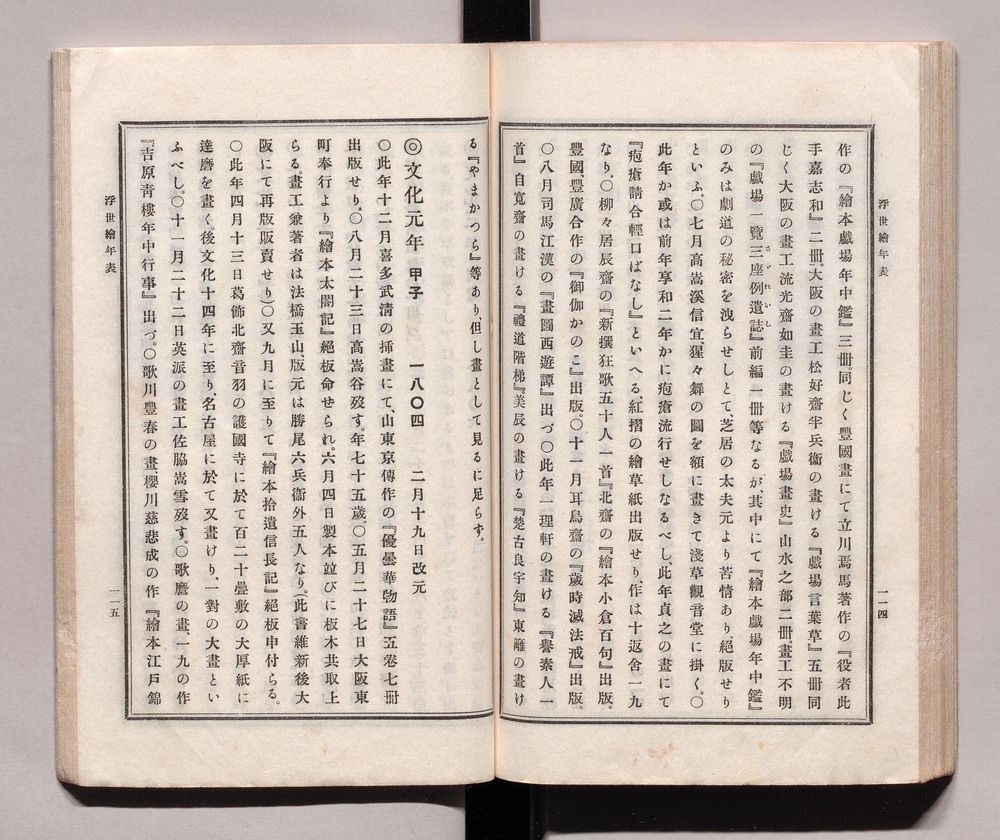 浮世繪年表
一一四
作の『繪本戲場年中鑑』三册。同じく豐國畫にて立川焉馬著作の『役者此
手嘉志和』二册。大阪の畫工松好齋半兵衞の畫ける『戲場言葉草』五册同
じく大阪の畫工流光齋如圭の畫ける『戲場畫史』山水之部二册。畫工不明
の『戲場一覽三座例遺誌』前編一册等なるが、其中にて『繪本戲場年中鑑』
さざれいし
のみは劇道の秘密を洩らせしとて、芝居の太夫元より苦情あり絕版せり
といふ。〇七月高嵩溪信宜、猩々舞の圖を額に畫きて淺草觀音堂に掛く。〇
此年か或は前年享和二年かに疱瘡流行せしなるべし、此年貞之の畫にて
『疱瘡請合輕口ばなし』といへる、紅摺の繪草紙出版せり、作は十返舍一九
なり。〇柳々居辰齋の『新撰狂歌五十人一首』北齋の『繪本小倉百句』出版。
豐國、豐廣合作の『御伽かのこ』出版。〇十一月耳鳥齋の『歲時滅法戒』出版。
〇八月司馬江漢の『畫圖西遊譚』出づ〇此年一理軒の畫ける『譽素人一
首』自寬齋の畫ける『禮道階梯』『美辰の畫ける『楚古良宇知』東籬の畫け
る『やまかつら』等あり、但し畫として見るに足らず。
◎文化元年 甲子 一八〇四 二月十九日改元
〇此年十二月喜多武淸の挿畫にて、山東京傳作の『優曇華物語』五卷七册
出版せり。〇八月二十三日高嵩谷歿す。年七十五歲。〇五月二十七日大阪東
町奉行より『繪本太閤記』絕板命せられ。六月四日製本並びに板木共取上
らる。畫工兼著者は法橋玉山、版元は勝尾六兵衞外五人なり。(此書維新後大
阪にて再版販賣せり)〇又九月に至りて『繪本拾遺信長記』絕板申付らる。
〇此年四月十三日葛飾北齋音羽の護國寺に於て百二十疊敷の大厚紙に
達磨を畫く。後文化十四年に至り、名古屋に於て又畫けり、一對の大畫とい
ふべし。〇十一月二十二日英派の畫工佐脇嵩雪歿す。〇歌麿の畫、一九の作
『吉原靑樓年中行事』出づ。〇歌川豐春の畫、櫻川慈悲成の作『繪本江戶錦
浮世繪年表
一一五